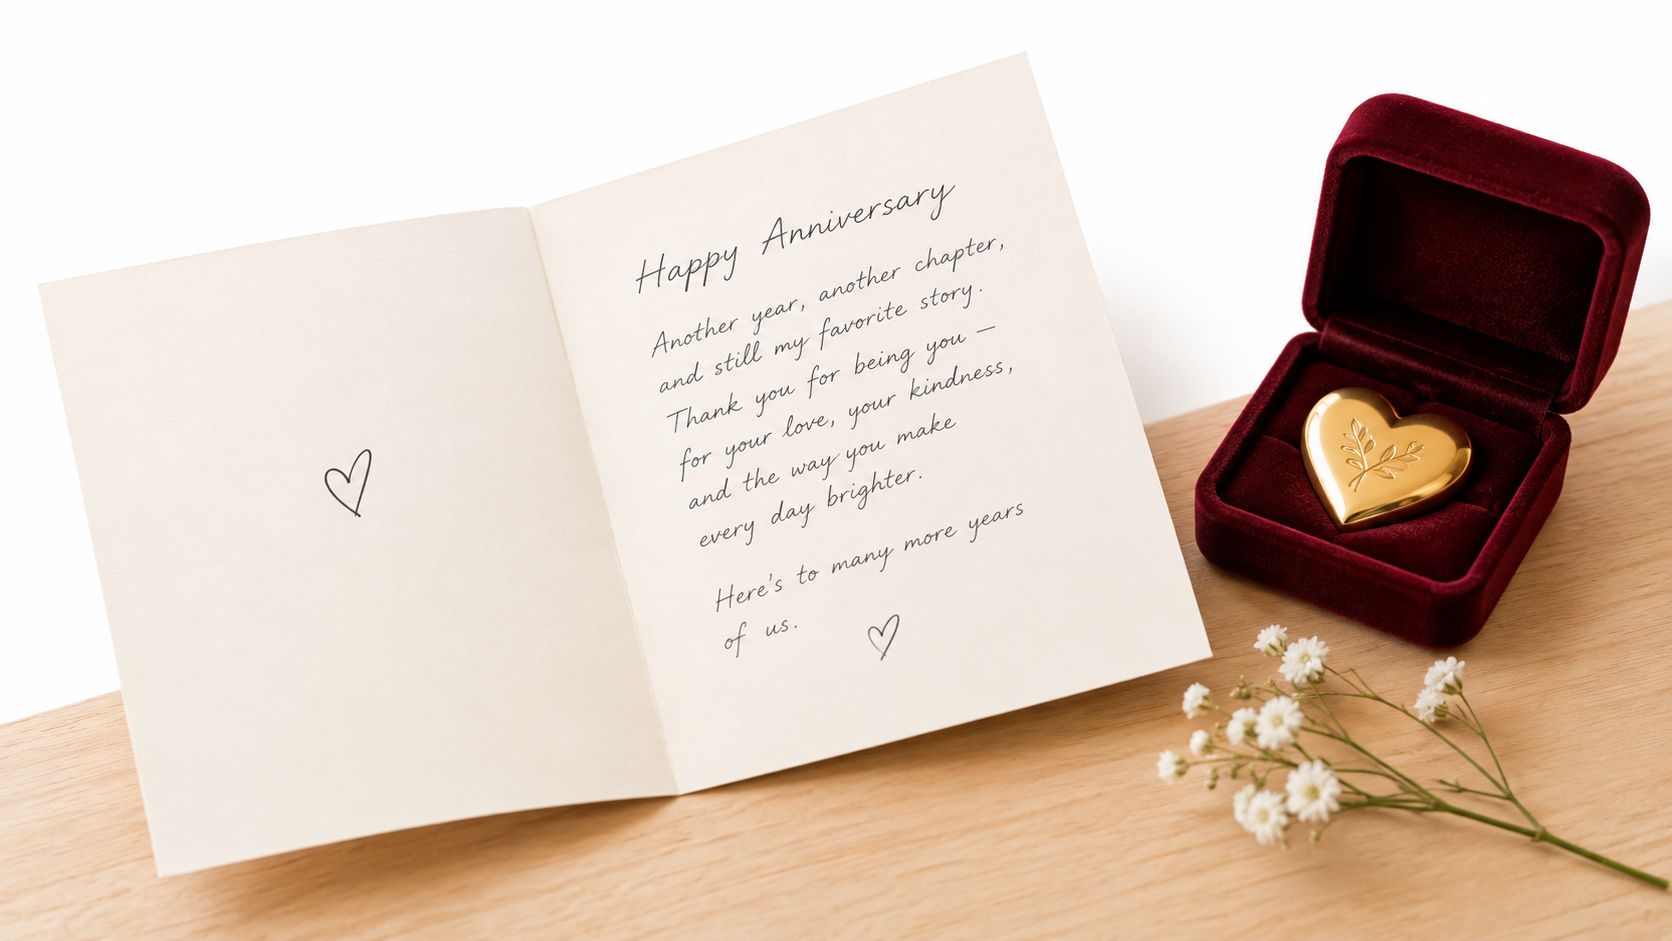 Happy Anniversary
Another year, another chapter,
and still my favorite story.
Thank you for being you —
for your love, your kindness,
and the way you make
every day brighter.
Here's to many more years
of us.